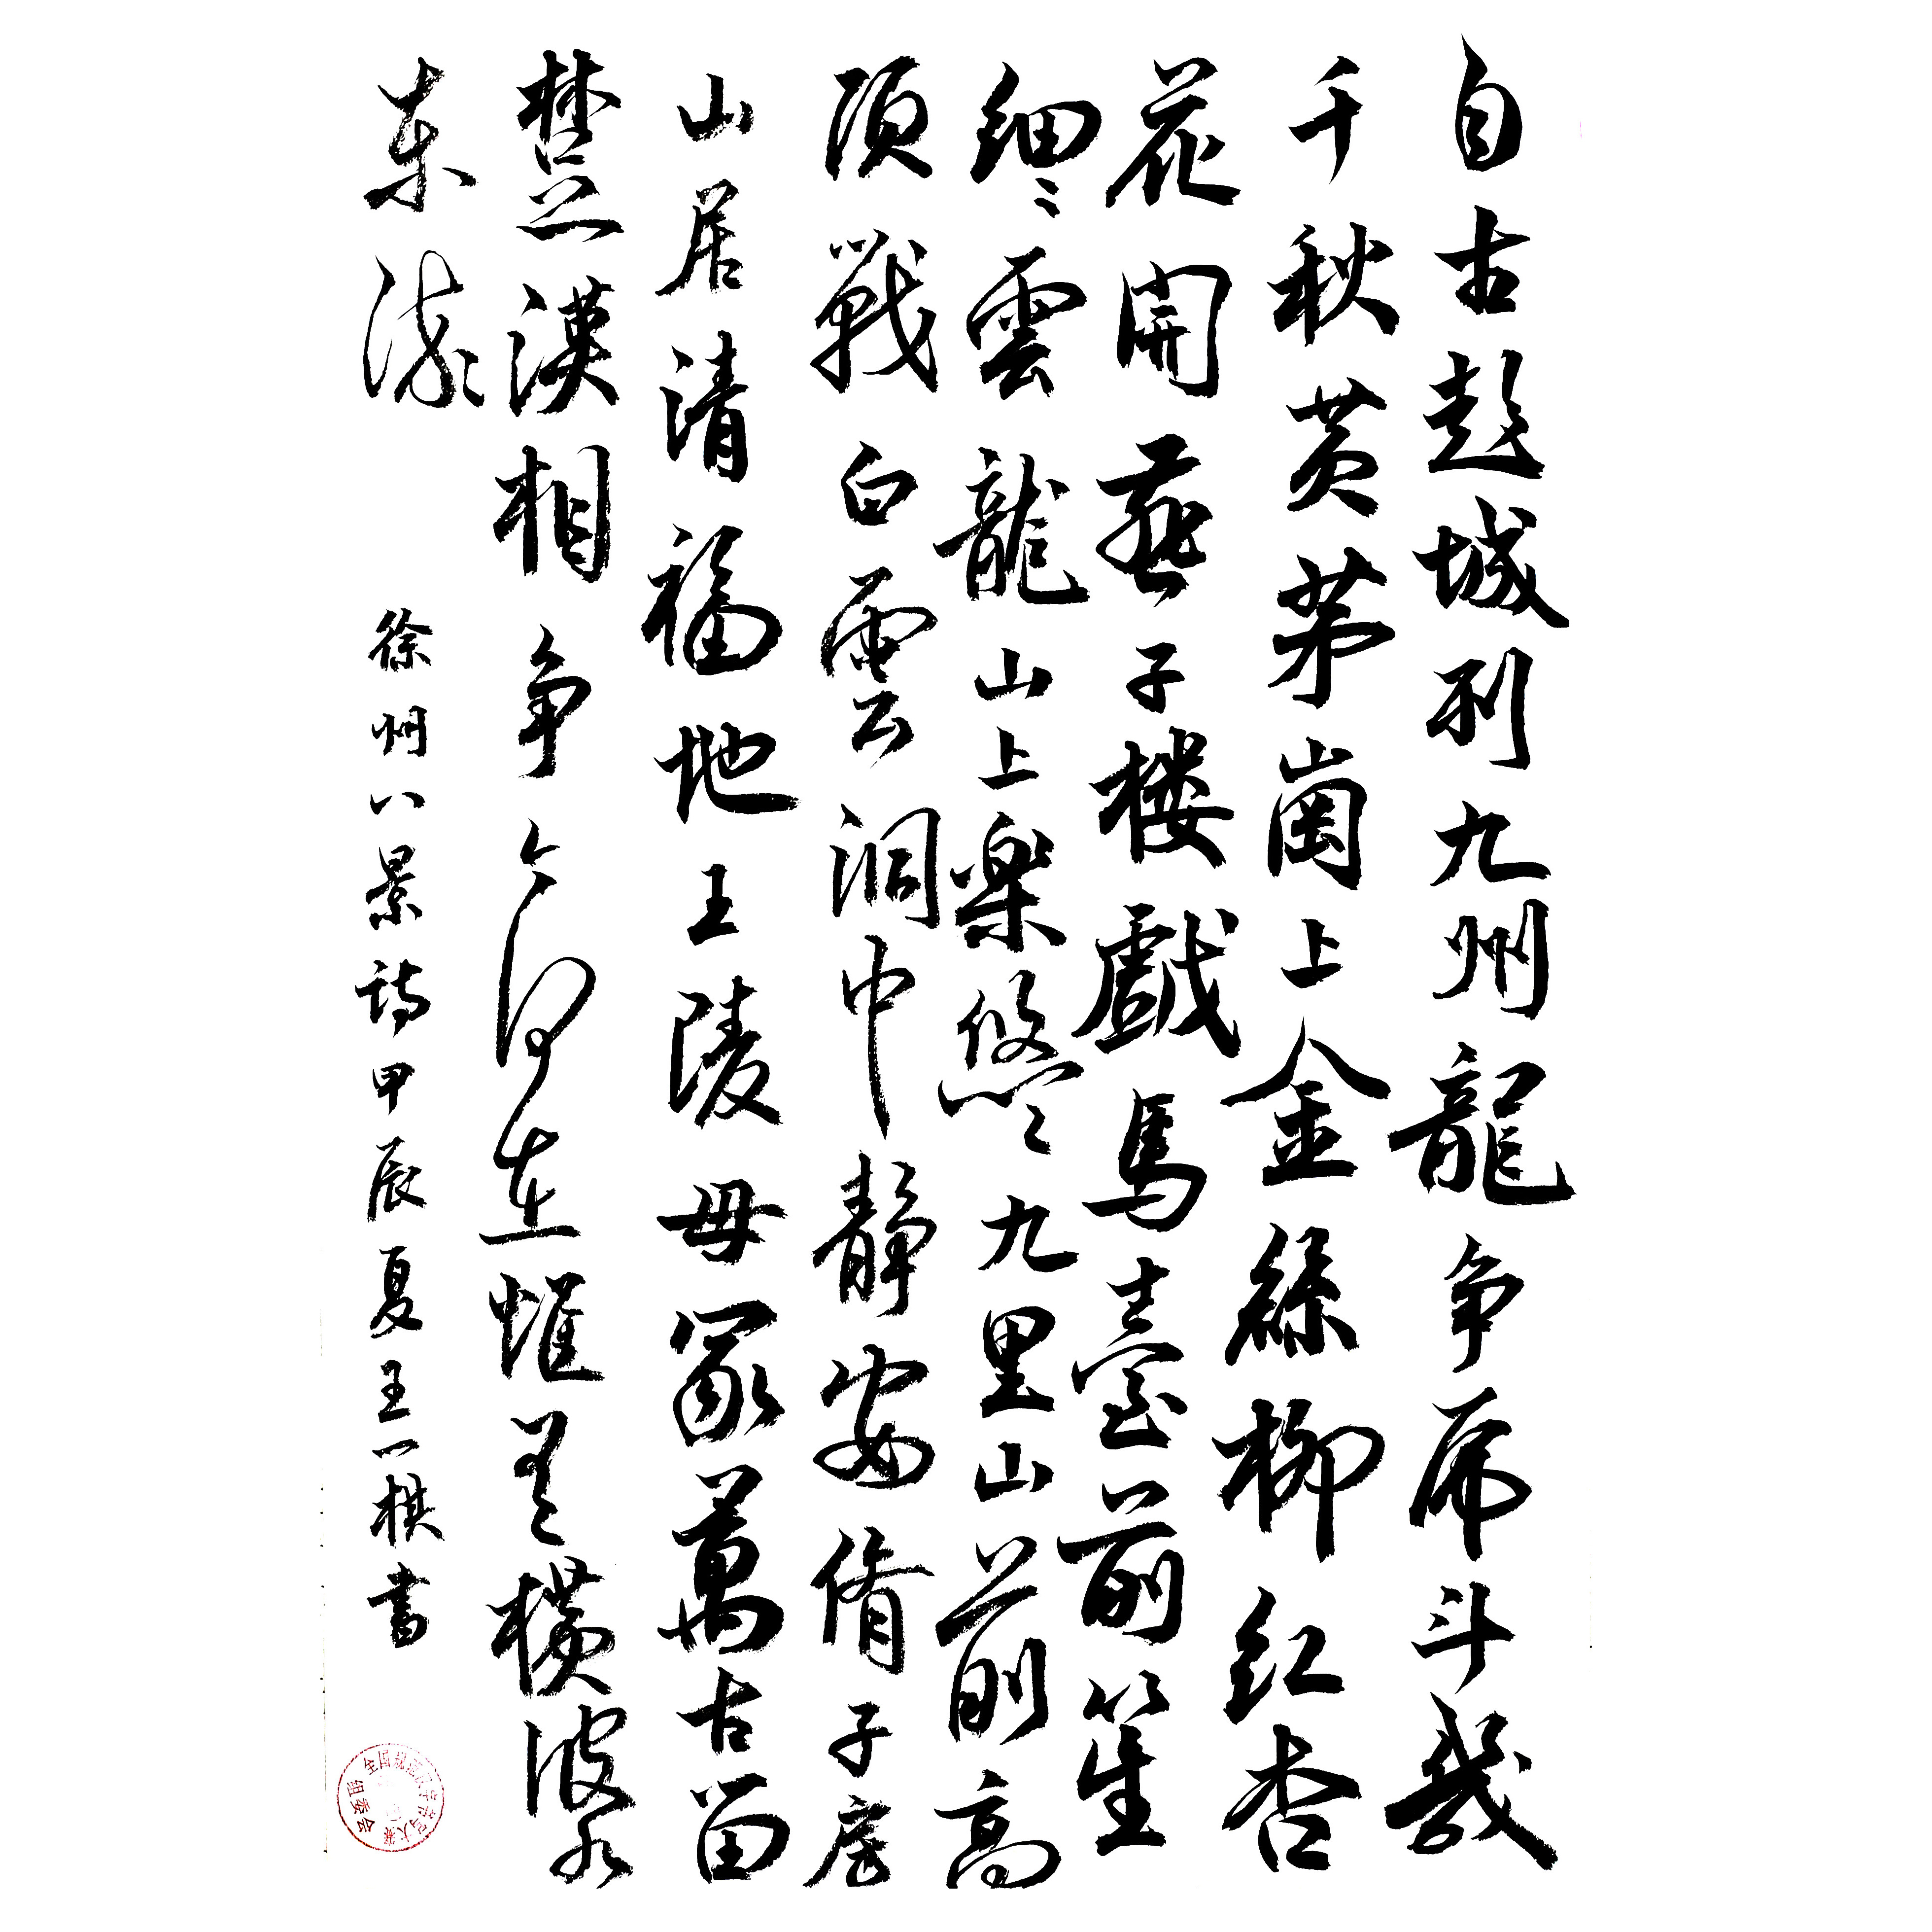 自古彭城列九州龍争虎斗幾
千秋黄茅崗上金絲柳红杏
花開燕子楼戲馬臺前笙
細々雲龍山上樂悠々九里山前高
頂戰白雲洞中静安脩子房
山居清福地王陵母冢萬古留
楚漢相争今何在惟見横波水
東流
徐州八景詩甲辰夏王一棋書
组委会